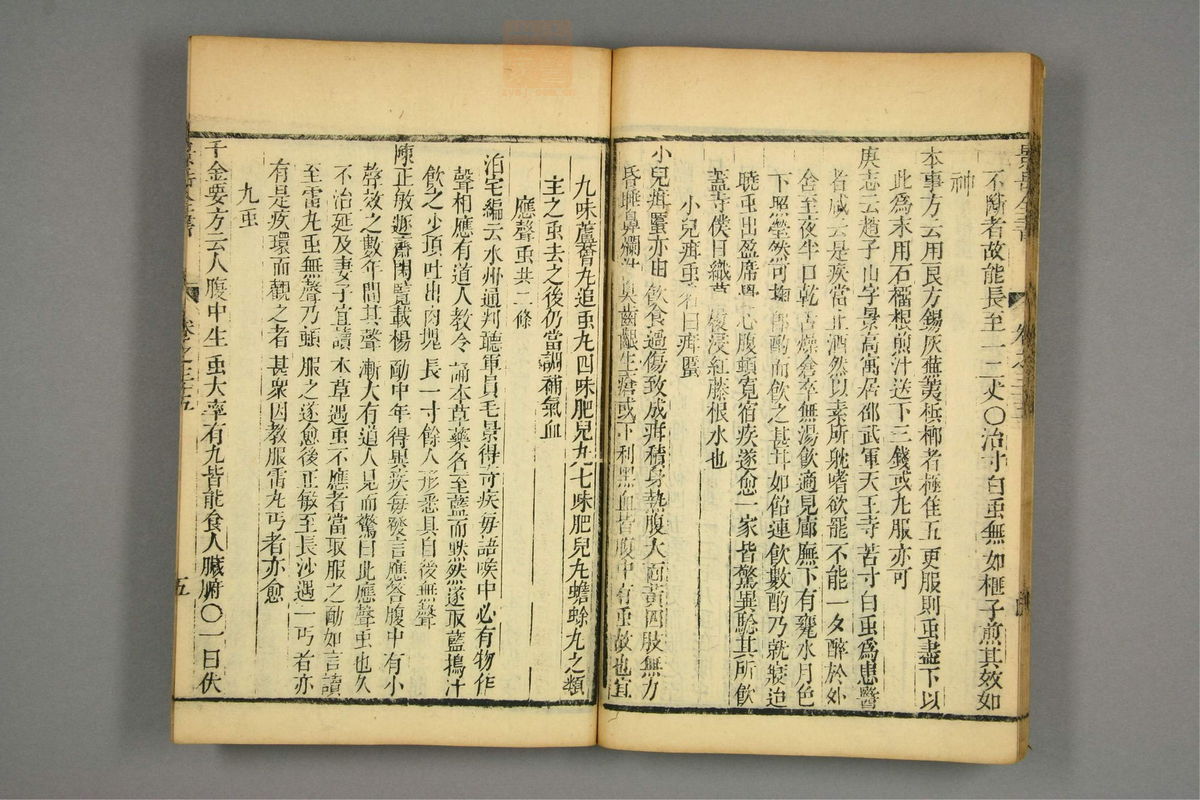 不斷者故能長至一二丈〇治寸白䖝無如榧子煎其效如
神
本事方云用良方錫灰蕪荑檳榔者極佳五更服則䖝盡下以
此爲末用石榴根煎汁送下三錢或丸服亦可
庚志云趙子山字景高寓居邵武軍天王寺苦寸白䖝爲患醫
者戒云是疾當止酒然以素所躭嗜欲罷不能一夕醉於外
舍至夜半口乾舌燥倉卒無湯飲適見廊廡下有甕水月色
下照瑩然可掬卽酌而飲之甚甘如飴連飲數酌乃就寢迨
曉䖝出盈席覺心腹頓寬宿疾遂愈一家皆驚異騐其所飲
蓋寺僕日織草履浸紅藤根水也
小兒疳䖝名曰疳䘌
小兒疳䘌亦由飲食過傷致成疳積身熱腹大面黃四肢無力
昏睡鼻爛汁臭齒齦生瘡或下利黑血皆腹中有䖝故也宜
景岳全書
卷之三十五
九味蘆薈丸追䖝丸四味肥兒丸七味肥兒丸蟾蜍丸之類
主之䖝去之後仍當調補氣血
應聲䖝共二條
泊宅編云永州通判聽軍員毛景得奇疾毎語喉中必有物作
聲相應有道人教令誦本草藥名至藍而默然遂取藍搗汁
飲之少頃吐出肉塊長一寸餘人形悉具自後無聲
陳正敏遯齋閑覽載楊勔中年得異疾毎發言應答腹中有小
聲效之數年間其聲漸大有道人見而驚曰此應聲䖝也久
不治延及妻子宜讀本草遇䖝不應者當取服之勔如言讀
至雷丸䖝無聲乃頓服之遂愈後正敏至長沙遇一丐者亦
有是疾環而觀之者甚衆因教服雷丸丐者亦愈
九䖝
千金要方云人腹中生䖝大率有九皆能食人臟腑〇一曰伏
景岳全書
卷之三十五
五